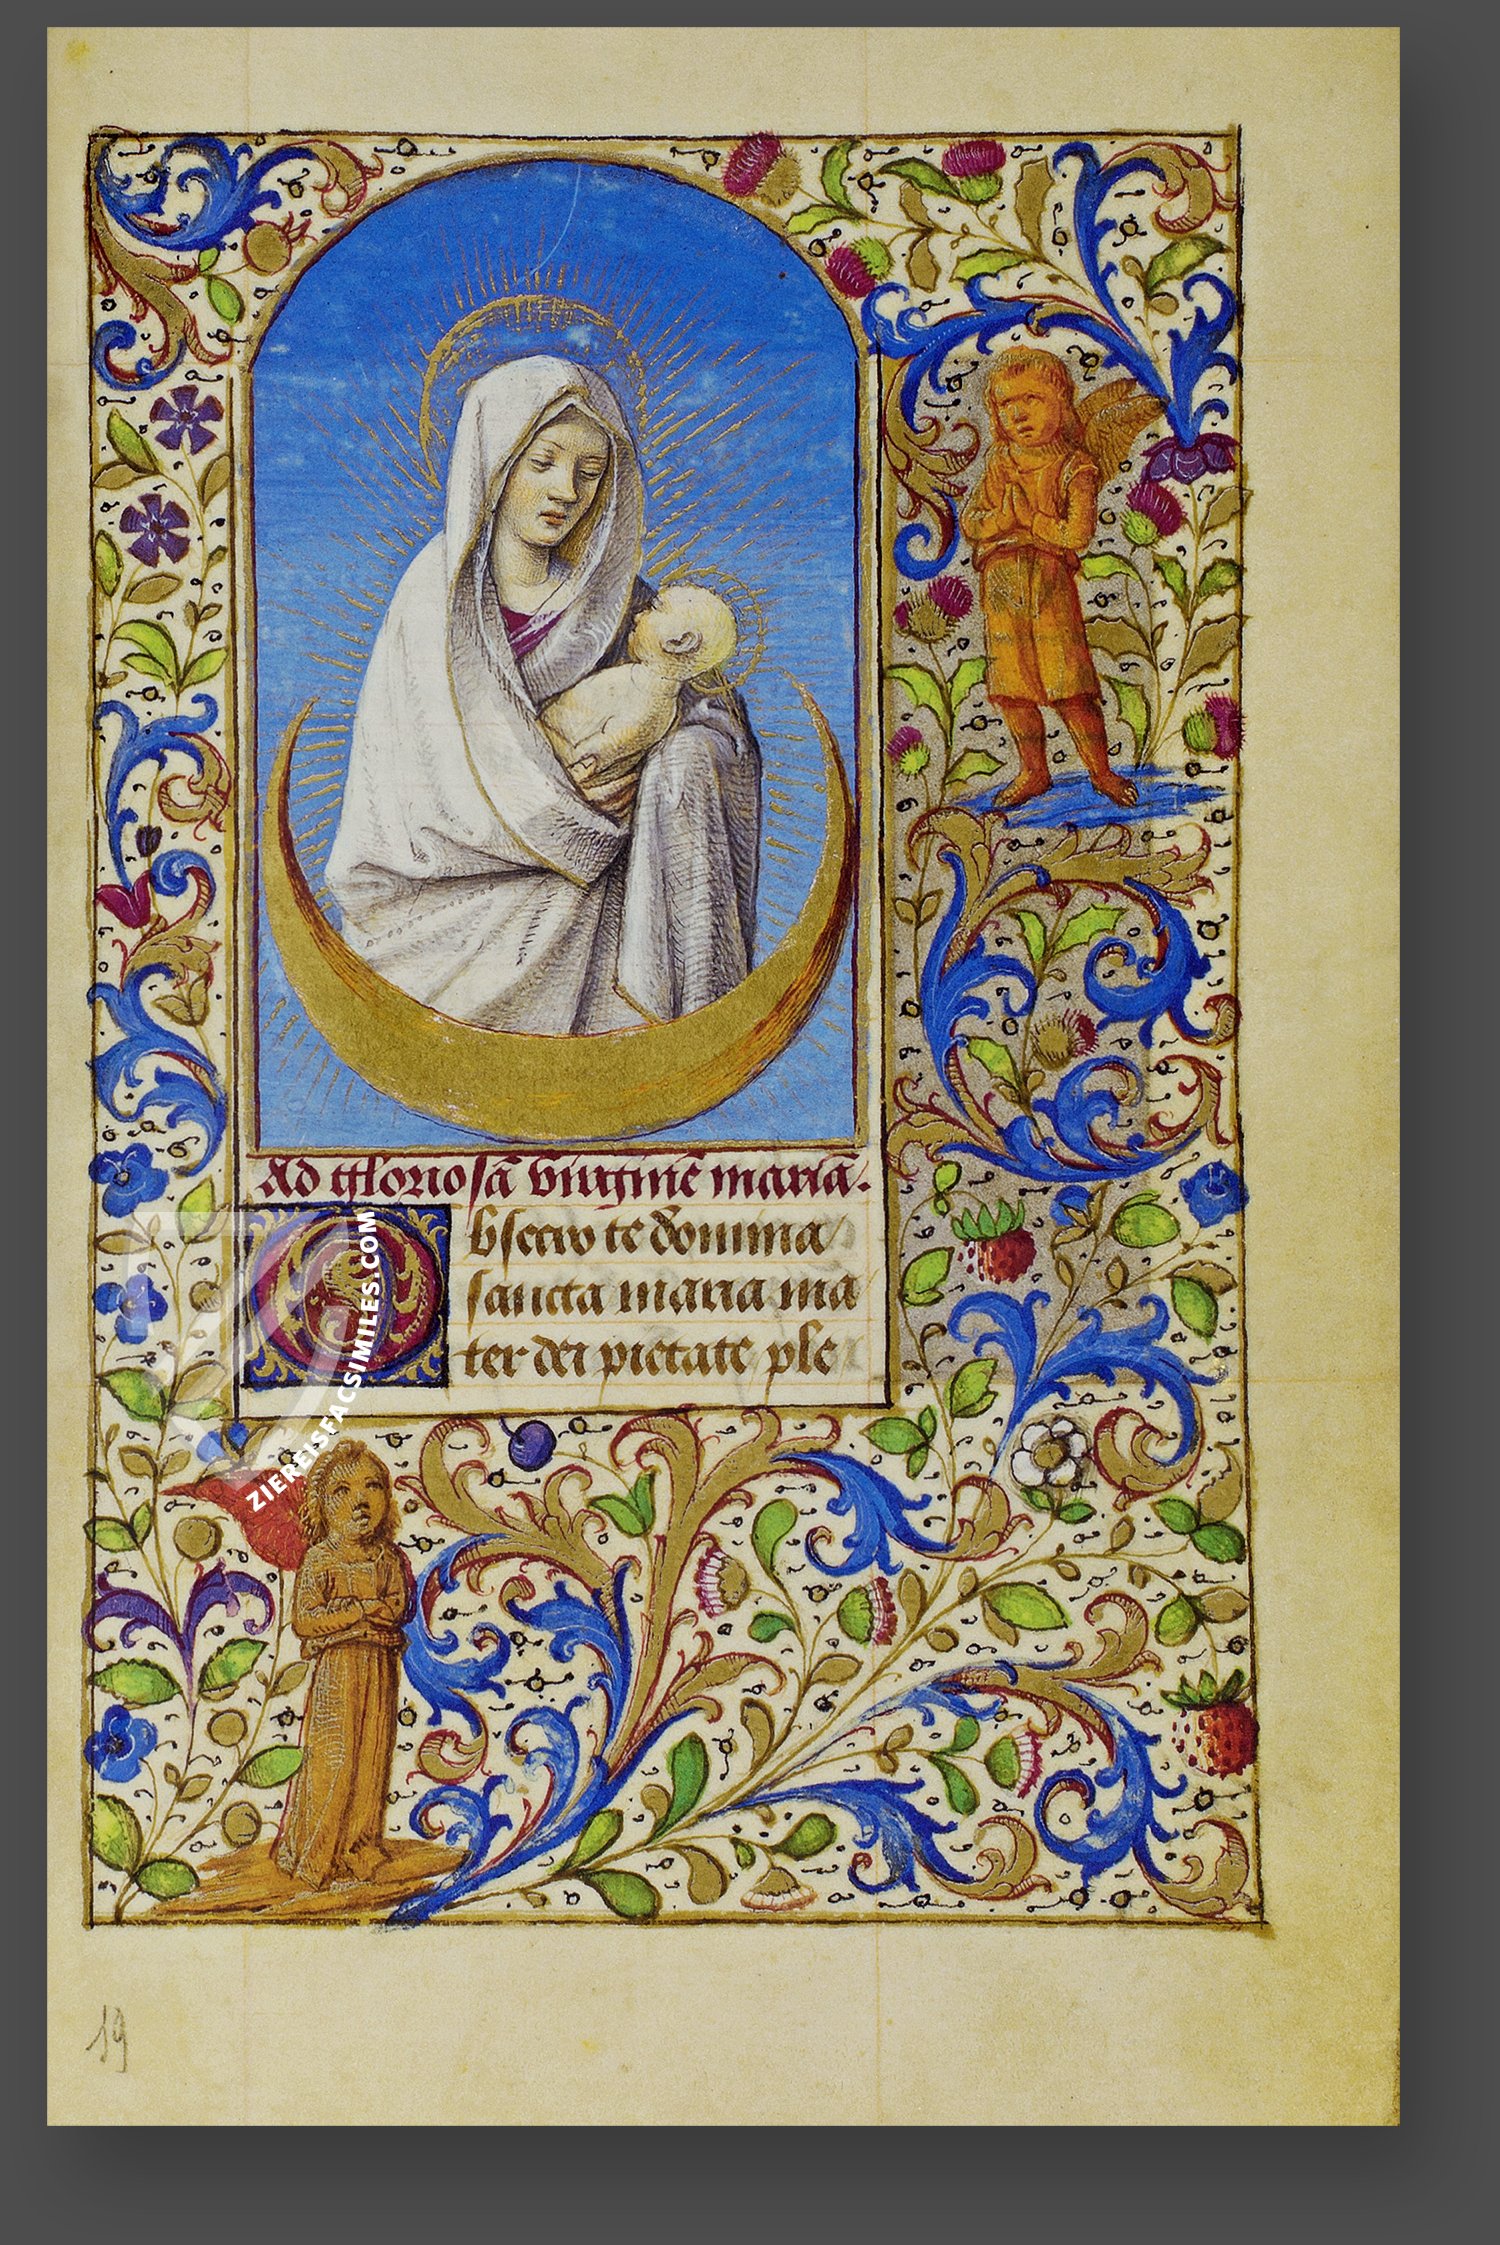 Ad gloriosā virginē mariā.
Obsecro te domina
sancta maria ma
ter dei pietate ple
ZIEREISFACSIMILES.COM
19